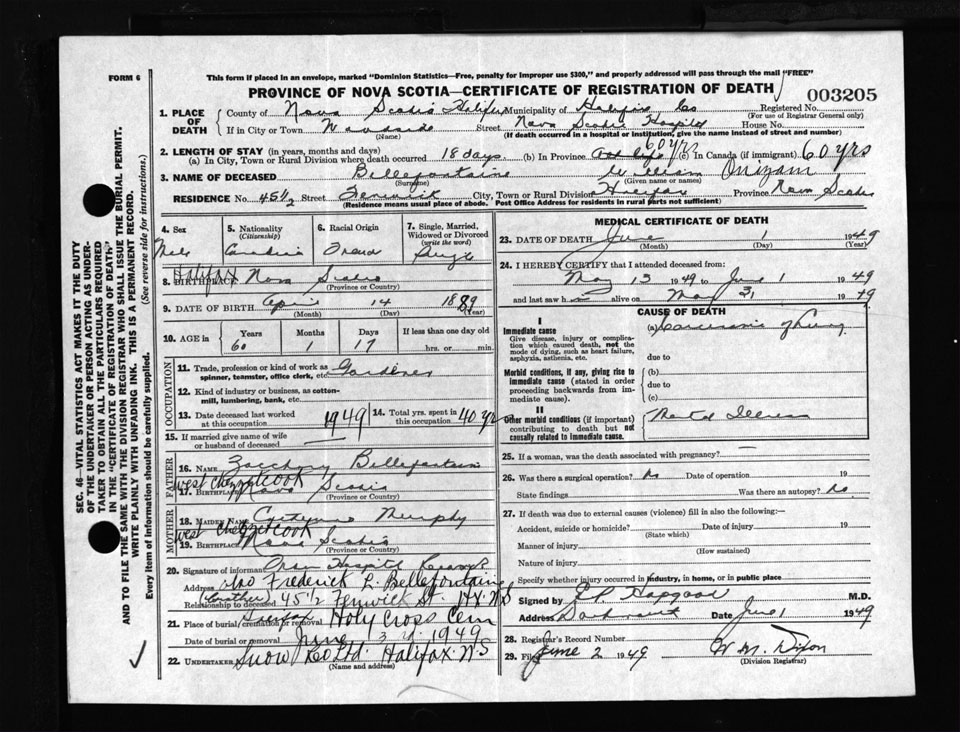 FORM 6
This form if placed in an envelope, marked "Dominion Statistics—Free, penalty for improper use $300," and properly addressed will pass through the mail "FREE"
PROVINCE OF NOVA SCOTIA—CERTIFICATE OF REGISTRATION OF DEATH
003205
1. PLACE OF DEATH
County of Nova Scotia Halifax Municipality of Halifax Co Registered No.
(For use of Registrar General only)
If in City or Town Woodside Street Nova Scotia Hospital House No.
(Name) (If death occurred in a hospital or institution, give the name instead of street and number)
2. LENGTH OF STAY (in years, months and days)
(a) In City, Town or Rural Division where death occurred 18 days (b) In Province 60 yrs (c) In Canada (if immigrant) 60 yrs
3. NAME OF DECEASED Bellefontaine William
(Surname) (Given name or names)
RESIDENCE No. 45½ Street Fenwick City, Town or Rural Division Halifax Province Nova Scotia
(Residence means usual place of abode. Post Office Address for residents in rural parts not sufficient)
4. Sex Male
5. Nationality (Citizenship) Canadian
6. Racial Origin French
7. Single, Married, Widowed or Divorced (write the word) Single
8. BIRTHPLACE Halifax Nova Scotia
(Province or Country)
9. DATE OF BIRTH April 14 1889
(Month) (Day) (Year)
10. AGE in Years Months Days If less than one day old
60 1 17 hrs. or min.
OCCUPATION
11. Trade, profession or kind of work as spinner, teamster, office clerk, etc. Gardener
12. Kind of industry or business, as cotton-mill, lumbering, bank, etc.
13. Date deceased last worked at this occupation 1949
14. Total yrs. spent in this occupation 40 yrs
15. If married give name of wife or husband of deceased
FATHER
16. Name Zachary Bellefontaine
West Chezzetcook
17. Birthplace Nova Scotia
(Province or Country)
MOTHER
18. Maiden Name Murphy
West Chezzetcook
19. Birthplace Nova Scotia
(Province or Country)
20. Signature of informant Hospital
Address Frederick L. Bellefontaine
Relationship to deceased (brother) 45½ Fenwick St. Hx. N.S
21. Place of burial, cremation or removal Holy Cross Cem
Date of burial or removal June 3rd 1949
22. Undertaker Snow & Co Ltd. Halifax. N.S
(Name and address)
MEDICAL CERTIFICATE OF DEATH
23. DATE OF DEATH June 1 1949
(Month) (Day) (Year)
24. I HEREBY CERTIFY that I attended deceased from:
May 13 1949 to June 1 1949
and last saw h alive on May 31 1949
CAUSE OF DEATH
I
Immediate cause
Give disease, injury or complication which caused death, not the mode of dying, such as heart failure, asphyxia, asthenia, etc.
(a) Carcinoma of Lung
due to
Morbid conditions, if any, giving rise to immediate cause (stated in order proceeding backwards from immediate cause).
(b)
due to
(c)
II
Other morbid conditions (if important) contributing to death but not causally related to immediate cause.
Mental Illness
25. If a woman, was the death associated with pregnancy? —
26. Was there a surgical operation? No Date of operation 19
State findings Was there an autopsy? No.
27. If death was due to external causes (violence) fill in also the following:—
Accident, suicide or homicide? Date of injury 19
(State which)
Manner of injury
(How sustained)
Nature of injury
Specify whether injury occurred in industry, in home, or in public place
Signed by E P Hapgood M.D.
Address Dartmouth Date June 1 1949
28. Registrar's Record Number
29. Filed June 2 1949 W. M. Dixon
(Division Registrar)
SEC. 46—VITAL STATISTICS ACT MAKES IT THE DUTY OF THE UNDERTAKER OR PERSON ACTING AS UNDERTAKER TO OBTAIN ALL THE PARTICULARS REQUIRED IN THE "CERTIFICATE OF REGISTRATION OF DEATH" AND TO FILE THE SAME WITH THE DIVISION REGISTRAR WHO SHALL ISSUE THE BURIAL PERMIT.
WRITE PLAINLY WITH UNFADING INK. THIS IS A PERMANENT RECORD.
Every item of information should be carefully supplied. (See reverse side for instructions.)